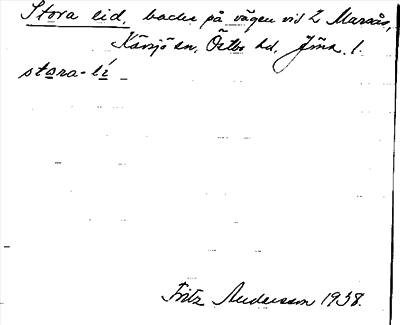 Stora lid, backe på vägen vid L Marsås,
Kävsjö sn, Östbo hd, Jönk. l.
stora-lí
Fritz Andersson 1938.